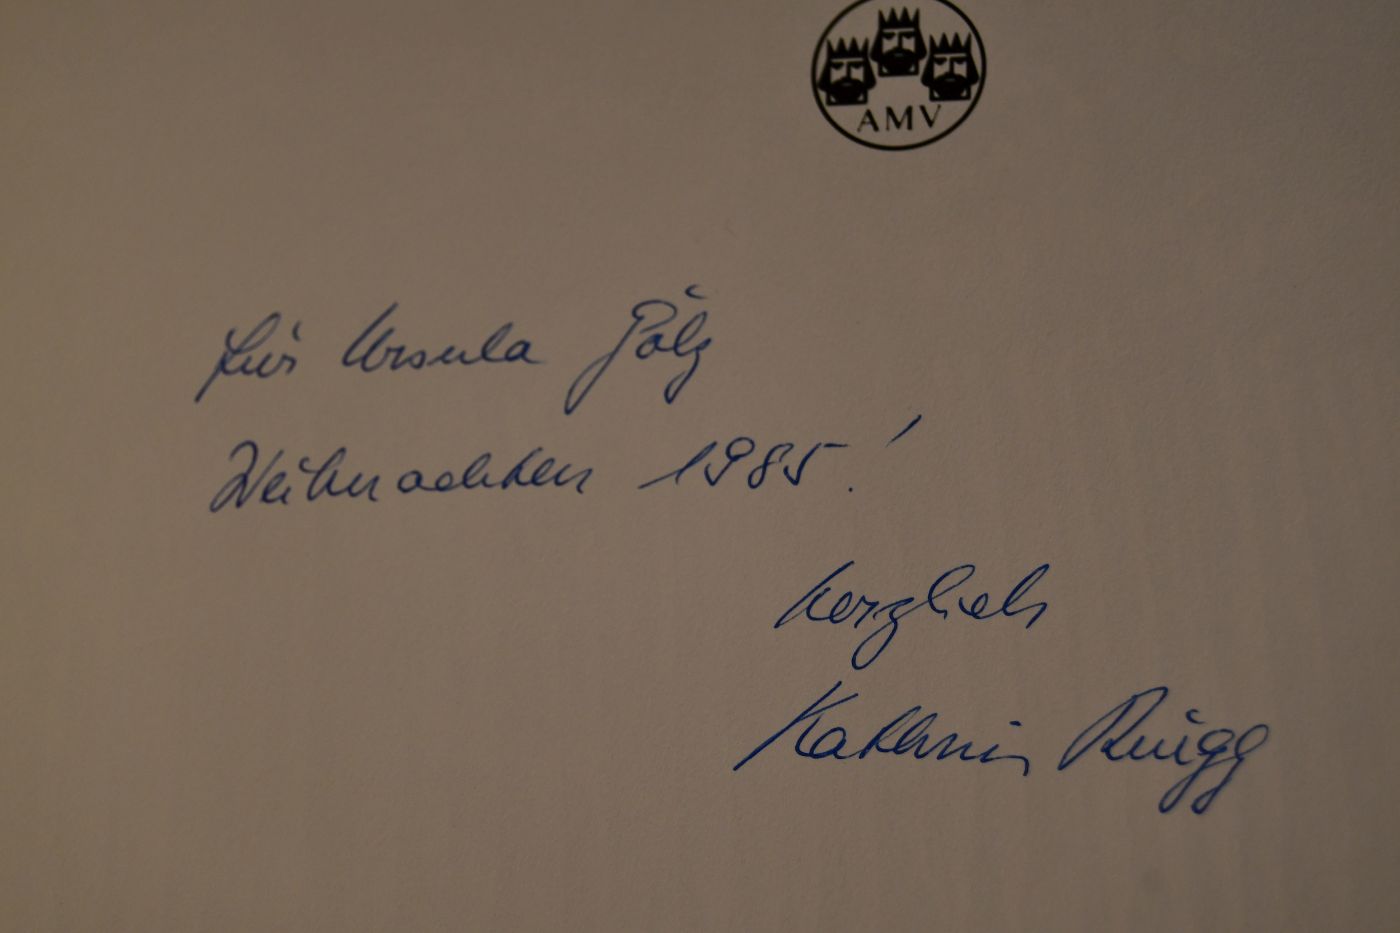 AMV
Für Ursula
Weihnachten 1985!
herzlich
Kathrin Rüegg